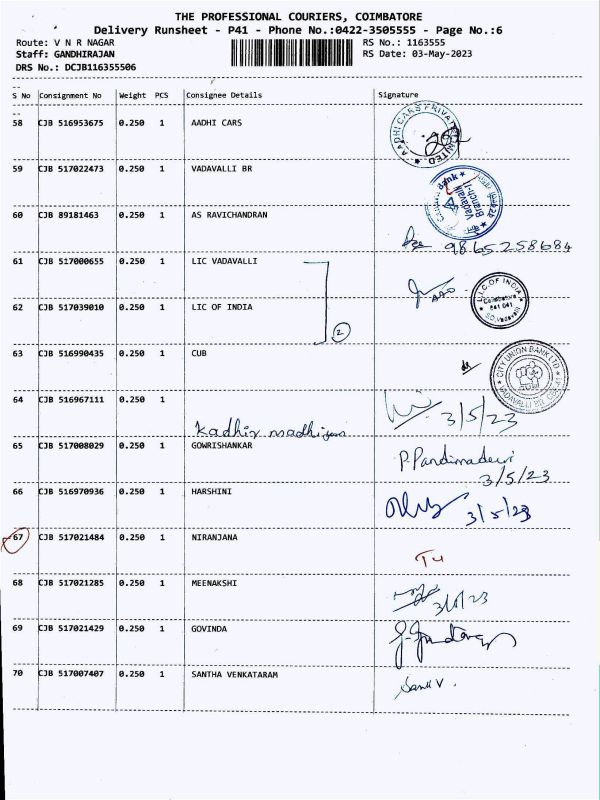 THE PROFESSIONAL COURIERS, COIMBATORE
Delivery Runsheet - P41 - Phone No.:0422-3505555 - Page No.:6
Route: V N R NAGAR RS No.: 1163555
Staff: GANDHIRAJAN RS Date: 03-May-2023
DRS No.: DCJB116355506
S No Consignment No Weight PCS Consignee Details Signature
58 CJB 516953675 0.250 1 AADHI CARS
AADHI CARS PRIVATE LIMITED
59 CJB 517022473 0.250 1 VADAVALLI BR
Canara Bank
Vadavalli
Branch-II
60 CJB 89181463 0.250 1 AS RAVICHANDRAN
9865258684
61 CJB 517000655 0.250 1 LIC VADAVALLI
AAO
L.I.C OF INDIA
Coimbatore
641 041
S.O. Vadavalli
62 CJB 517039010 0.250 1 LIC OF INDIA
2
63 CJB 516990435 0.250 1 CUB
CITY UNION BANK LTD
64 CJB 516967111 0.250 1
3/5/23
65 CJB 517008029 0.250 1 GOWRISHANKAR
P. Pandimadevi
3/5/23
66 CJB 516970936 0.250 1 HARSHINI
3/5/23
67 CJB 517021484 0.250 1 NIRANJANA
68 CJB 517021285 0.250 1 MEENAKSHI
3/5/23
69 CJB 517021429 0.250 1 GOVINDA
70 CJB 517007407 0.250 1 SANTHA VENKATARAM